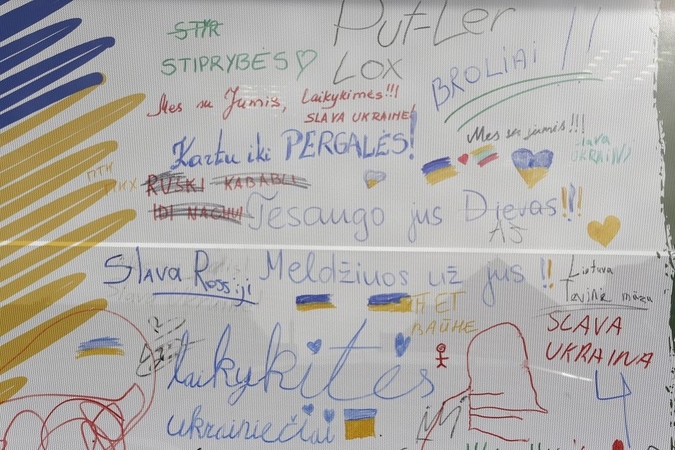 Put-Ler
STIPRYBĖS
LOX
BROLIAI !!
Mes su Jumis, Laikykimės!!!
SLAVA UKRAINE!
Mes su jumis!!!
Slava
UKRAINI
Kartu iki PERGALĖS!
ПТН
ПНХ
RUSKI KABABLI
IDI NACHUI
Tesaugo jus Dievas!!!
AŠ
Slava Rossiji
Meldžiuos už jus !!
Lietuva
Tavinė māža
НЕТ
ВАЙНЕ
SLAVA
UKRAINA
Laikykitės
ukrainiečiai